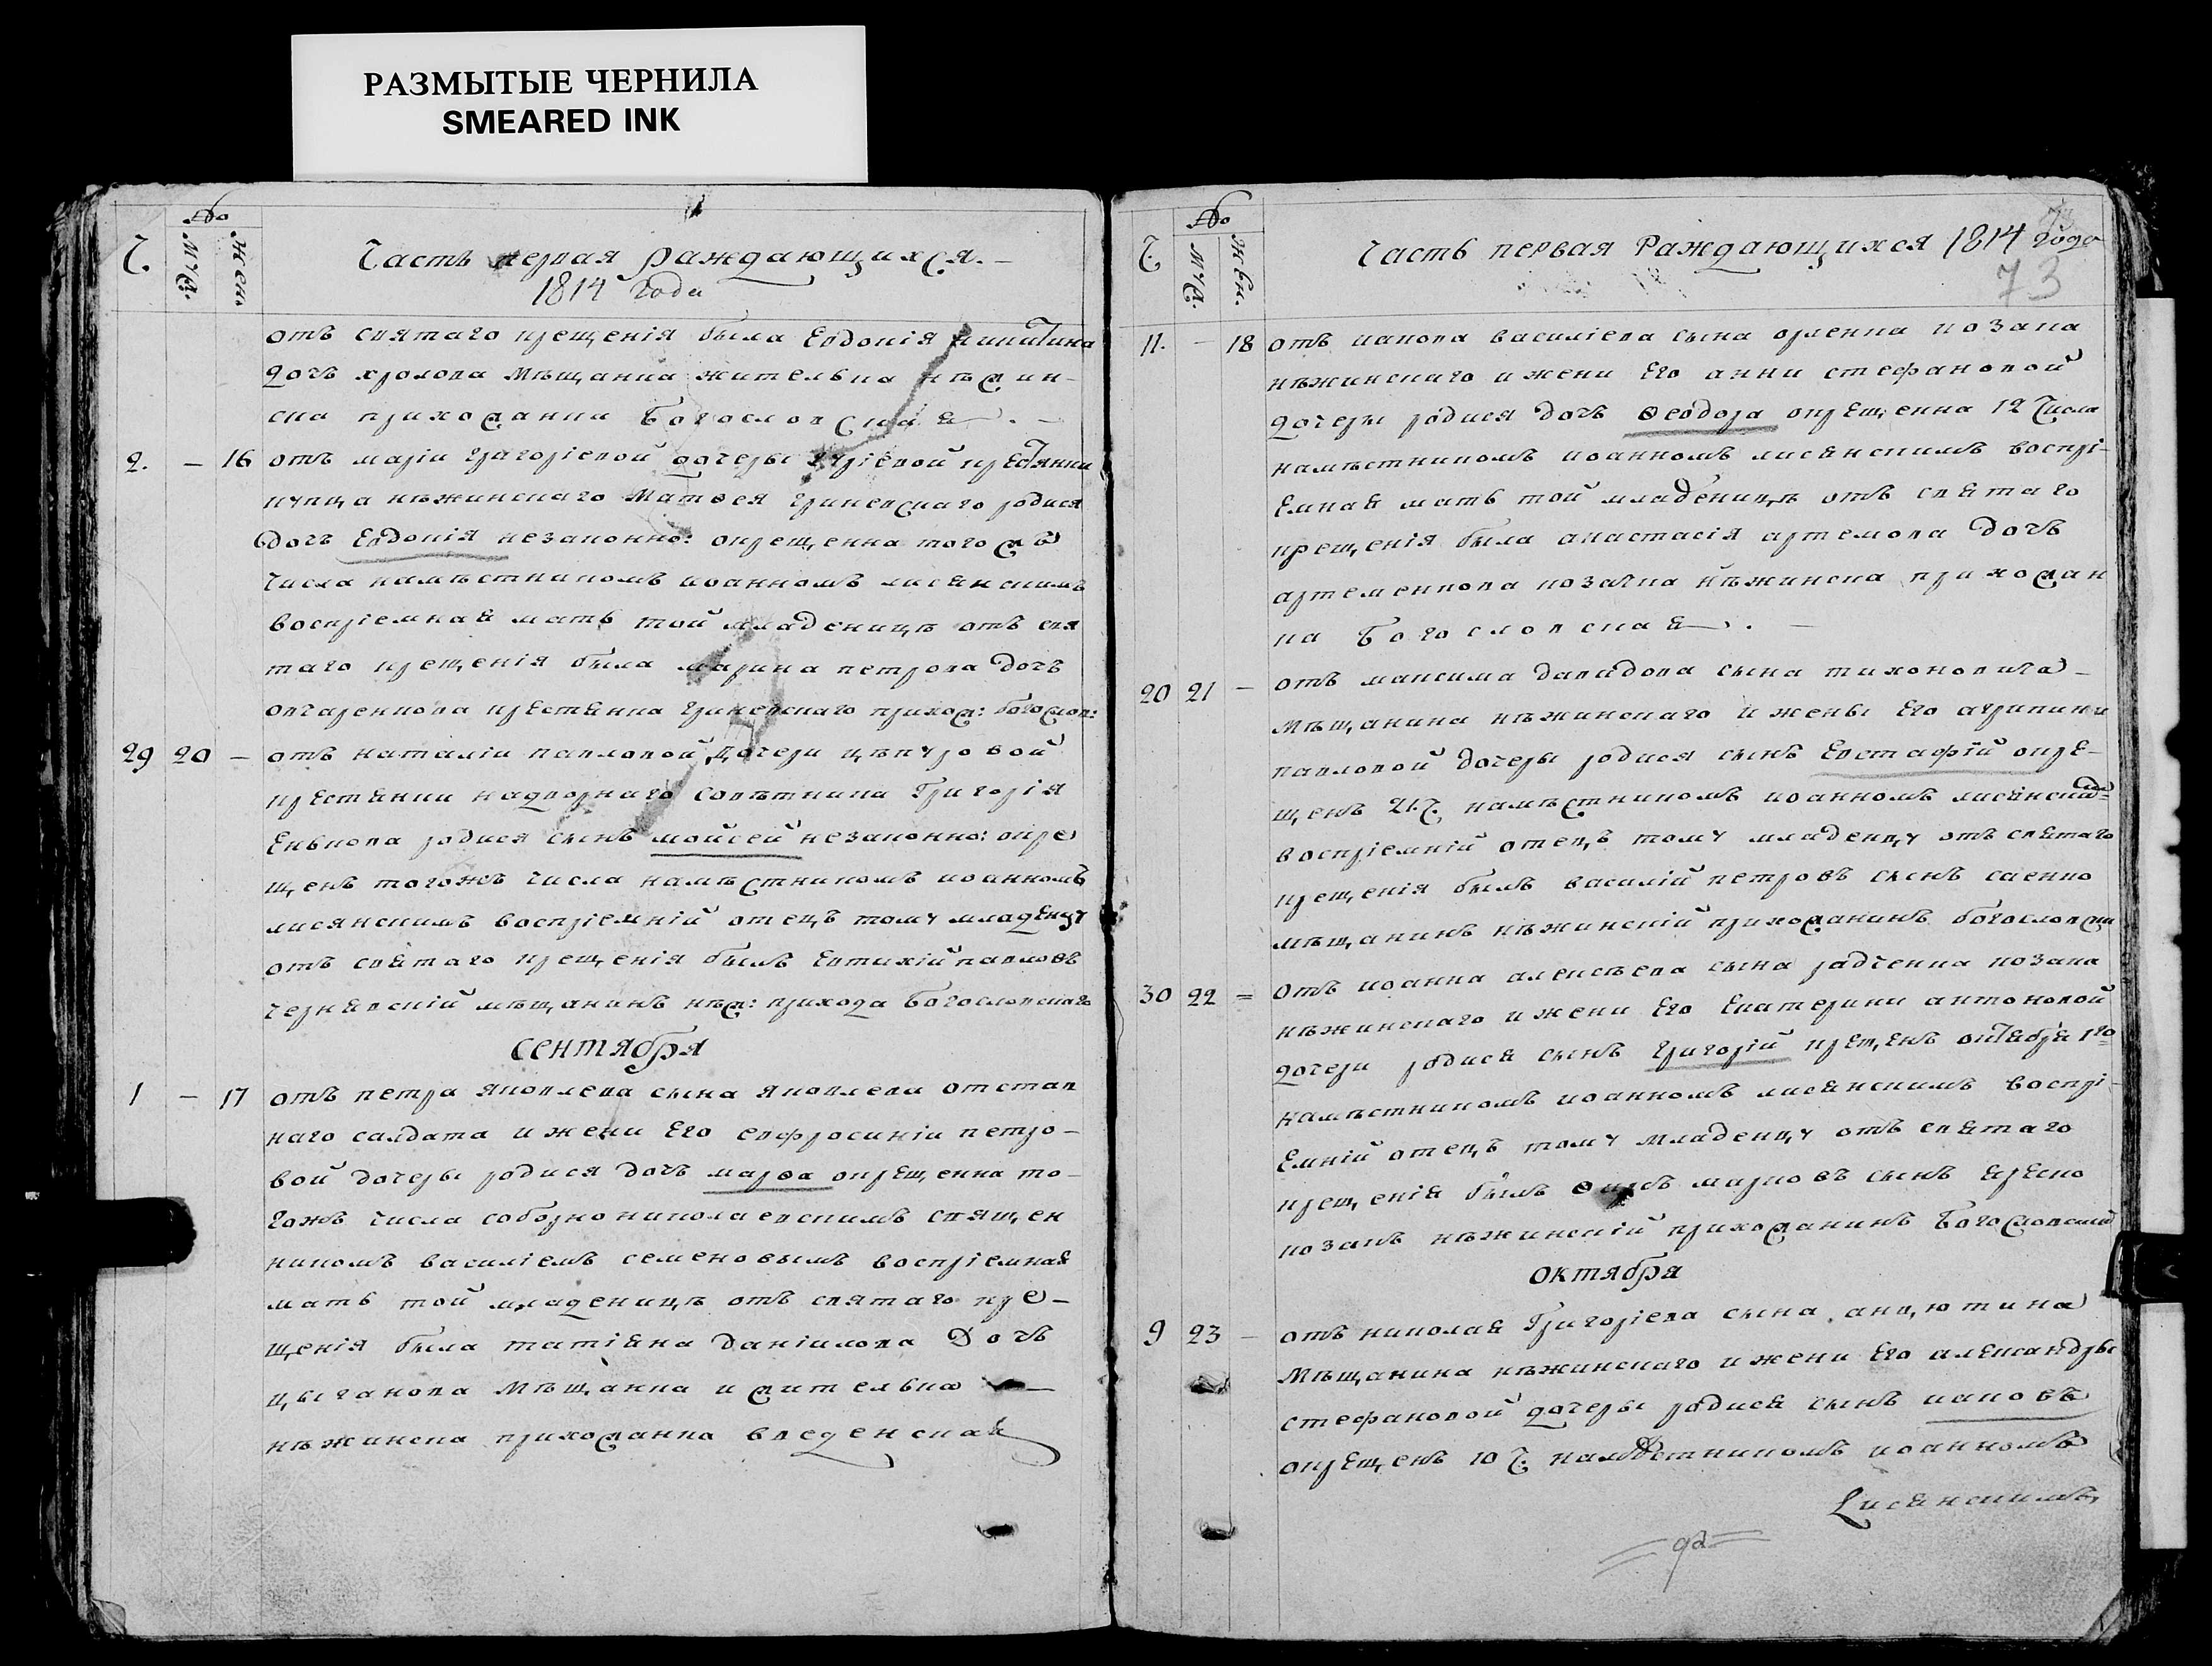 РАЗМЫТЫЕ ЧЕРНИЛА
SMEARED INK
№
Ч.
муж.
жен.
Часть первая раждающихся.
1814 Года
отъ святаго крещенія была Евдокія Никитина
дочь хролова мѣщанка жителька нѣжин-
ска прихожанка Богословская.
2. – 16 отъ маріи григоріевой дочеры крестянки
купца нѣжинскаго Матѳея гриневскаго родися
дочь Евдокія незаконно: окрещенна того жъ
числа намѣстникомъ иоанномъ лисянскимъ
воспріемная мать той младеницѣ отъ свя
таго крещенія была марина петрова дочь
овчаренкова крестянка гриневскаго прихож: богослов:
29 20 – отъ наталіи павловой дочери цѣпуровой
крестянки надворнаго совѣтника Григорія
родися сынъ мойсей незаконно: окре
щенъ тогожъ числа намѣстникомъ иоанномъ
лисянскимъ воспріемній отецъ тому младенцу
отъ святаго крещенія былъ Евтихій павловъ
чернявскій мѣщанинъ нѣж: прихода Богословскаго
сентября
1 – 17 отъ петра яковлева сына яковлева отстав
наго салдата и жени его евфросиніи петро-
вой дочеры родися дочь марѳа окрещенна то-
гожъ числа соборно николаевскимъ священ
никомъ василіемъ семеновымъ воспріемная
мать той младеницѣ отъ святаго кре-
щенія была татіяна даніилова дочь
цыганкова мѣщанка и жителька
нѣжинска прихожанка введенская
№
Ч.
муж.
жен.
Часть первая Раждающихся 1814 Года
73
11. – 18 отъ иакова василіева сына орленка козака
нѣжинскаго и жени Его анни стефановой
дочеры родися дочь ѳеодора окрещенна 12 числа
намѣстникомъ иоанномъ лисянскимъ воспрі-
емная мать той младеницѣ отъ святаго
крещенія была анастасія артемова дочь
артеменкова козачка нѣжинска прихожан
ка Богословская.
20 21 – отъ максима давидова сына тихоновича
мѣщанина нѣжинскаго и жены Его агрипини
павловой дочеры родися сынъ Евстафій окре-
щенъ 21 Ч. намѣстникомъ иоанномъ лисянски
воспріемній отецъ тому младенцу отъ святаго
крещенія былъ василій петровъ сынъ саенко
мѣщанинъ нѣжинскій прихожанинъ богословски
30 22 = отъ иоанна алексѣева сына радченка козака
нѣжинскаго и жени Его Екатерини антоновой
дочери родися сынъ григорій крещенъ октября 1го
намѣстникомъ иоанномъ лисянскимъ воспрі-
емній отецъ тому младенцу отъ святаго
крещенія былъ марковъ сынъ
козакъ нѣжинскій прихожанинъ Богословскій
октября
9 23 – отъ николая Григоріева сына анцютина
мѣщанина нѣжинскаго и жени Его александры
стефановой дочеры родися сынъ иаковъ
окрещенъ 10 Ч. намѣстникомъ иоанномъ
Лисянскимъ